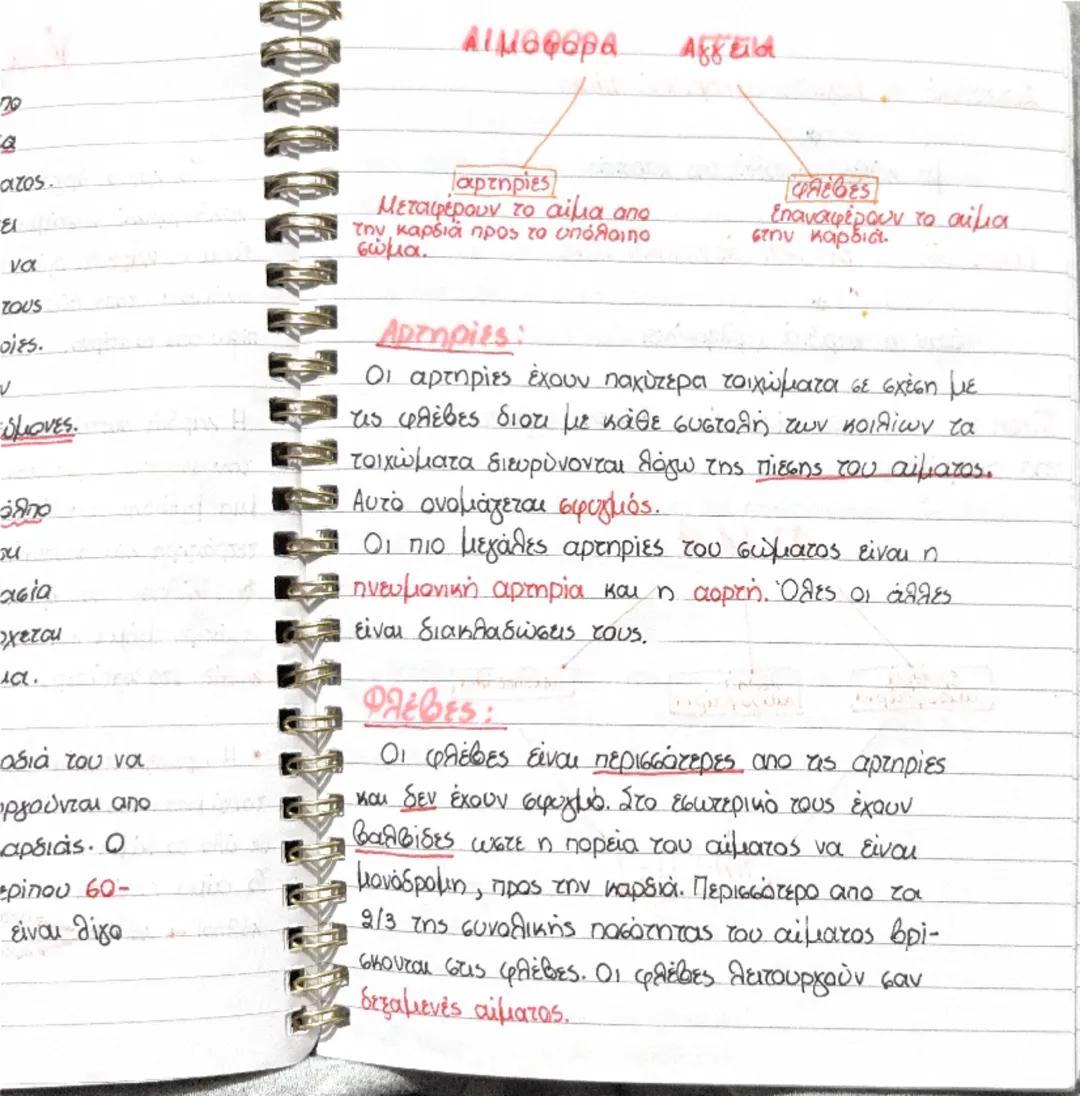 πο
α
ατος.
ει
να
τους
οίες.
ν
εύμονες.
όλπο
ου
ασία
οχεται
ια.
αδιά του να
οργούνται απο
αρδιάς. Ο
ερίπου 60-
είναι λίγο
ΑΙΜΟΦΟΡΑ ΑΓΓΕΙΑ
αρτηρίες
Μεταφέρουν το αίμα απο
την καρδιά προς το υπόλοιπο
σώμα.
φλέβες
επαναφέρουν το αίμα
στην καρδιά.
Αρτηρίες:
Οι αρτηρίες έχουν παχύτερα τοιχώματα σε σχέση με
τις φλέβες διοτι με κάθε συστολή των κοιλίων τα
τοιχώματα διευρύνονται λόγω της πίεσης του αίματος.
Αυτό ονομάζεται σφυγμός.
Οι πιο μεγάλες αρτηρίες του σώματος είναι η
πνευμονική αρτηρία και η αορτή. Όλες οι άλλες
είναι διακλαδώσεις τους.
Φλέβες:
Οι φλέβες είναι περισσότερες απο τις αρτηρίες
και δεν έχουν σφυγμό. Στο εσωτερικό τους έχουν
βαλβίδες ωστε η πορεία του αίματος να είναι
μονόδρομη, προς την καρδιά. Περισσότερο απο τα
2/3 της συνολικής ποσότητας του αίματος βρί-
σκονται στις φλέβες. Οι φλέβες λειτουργούν σαν
δεξαμενές αίματος.